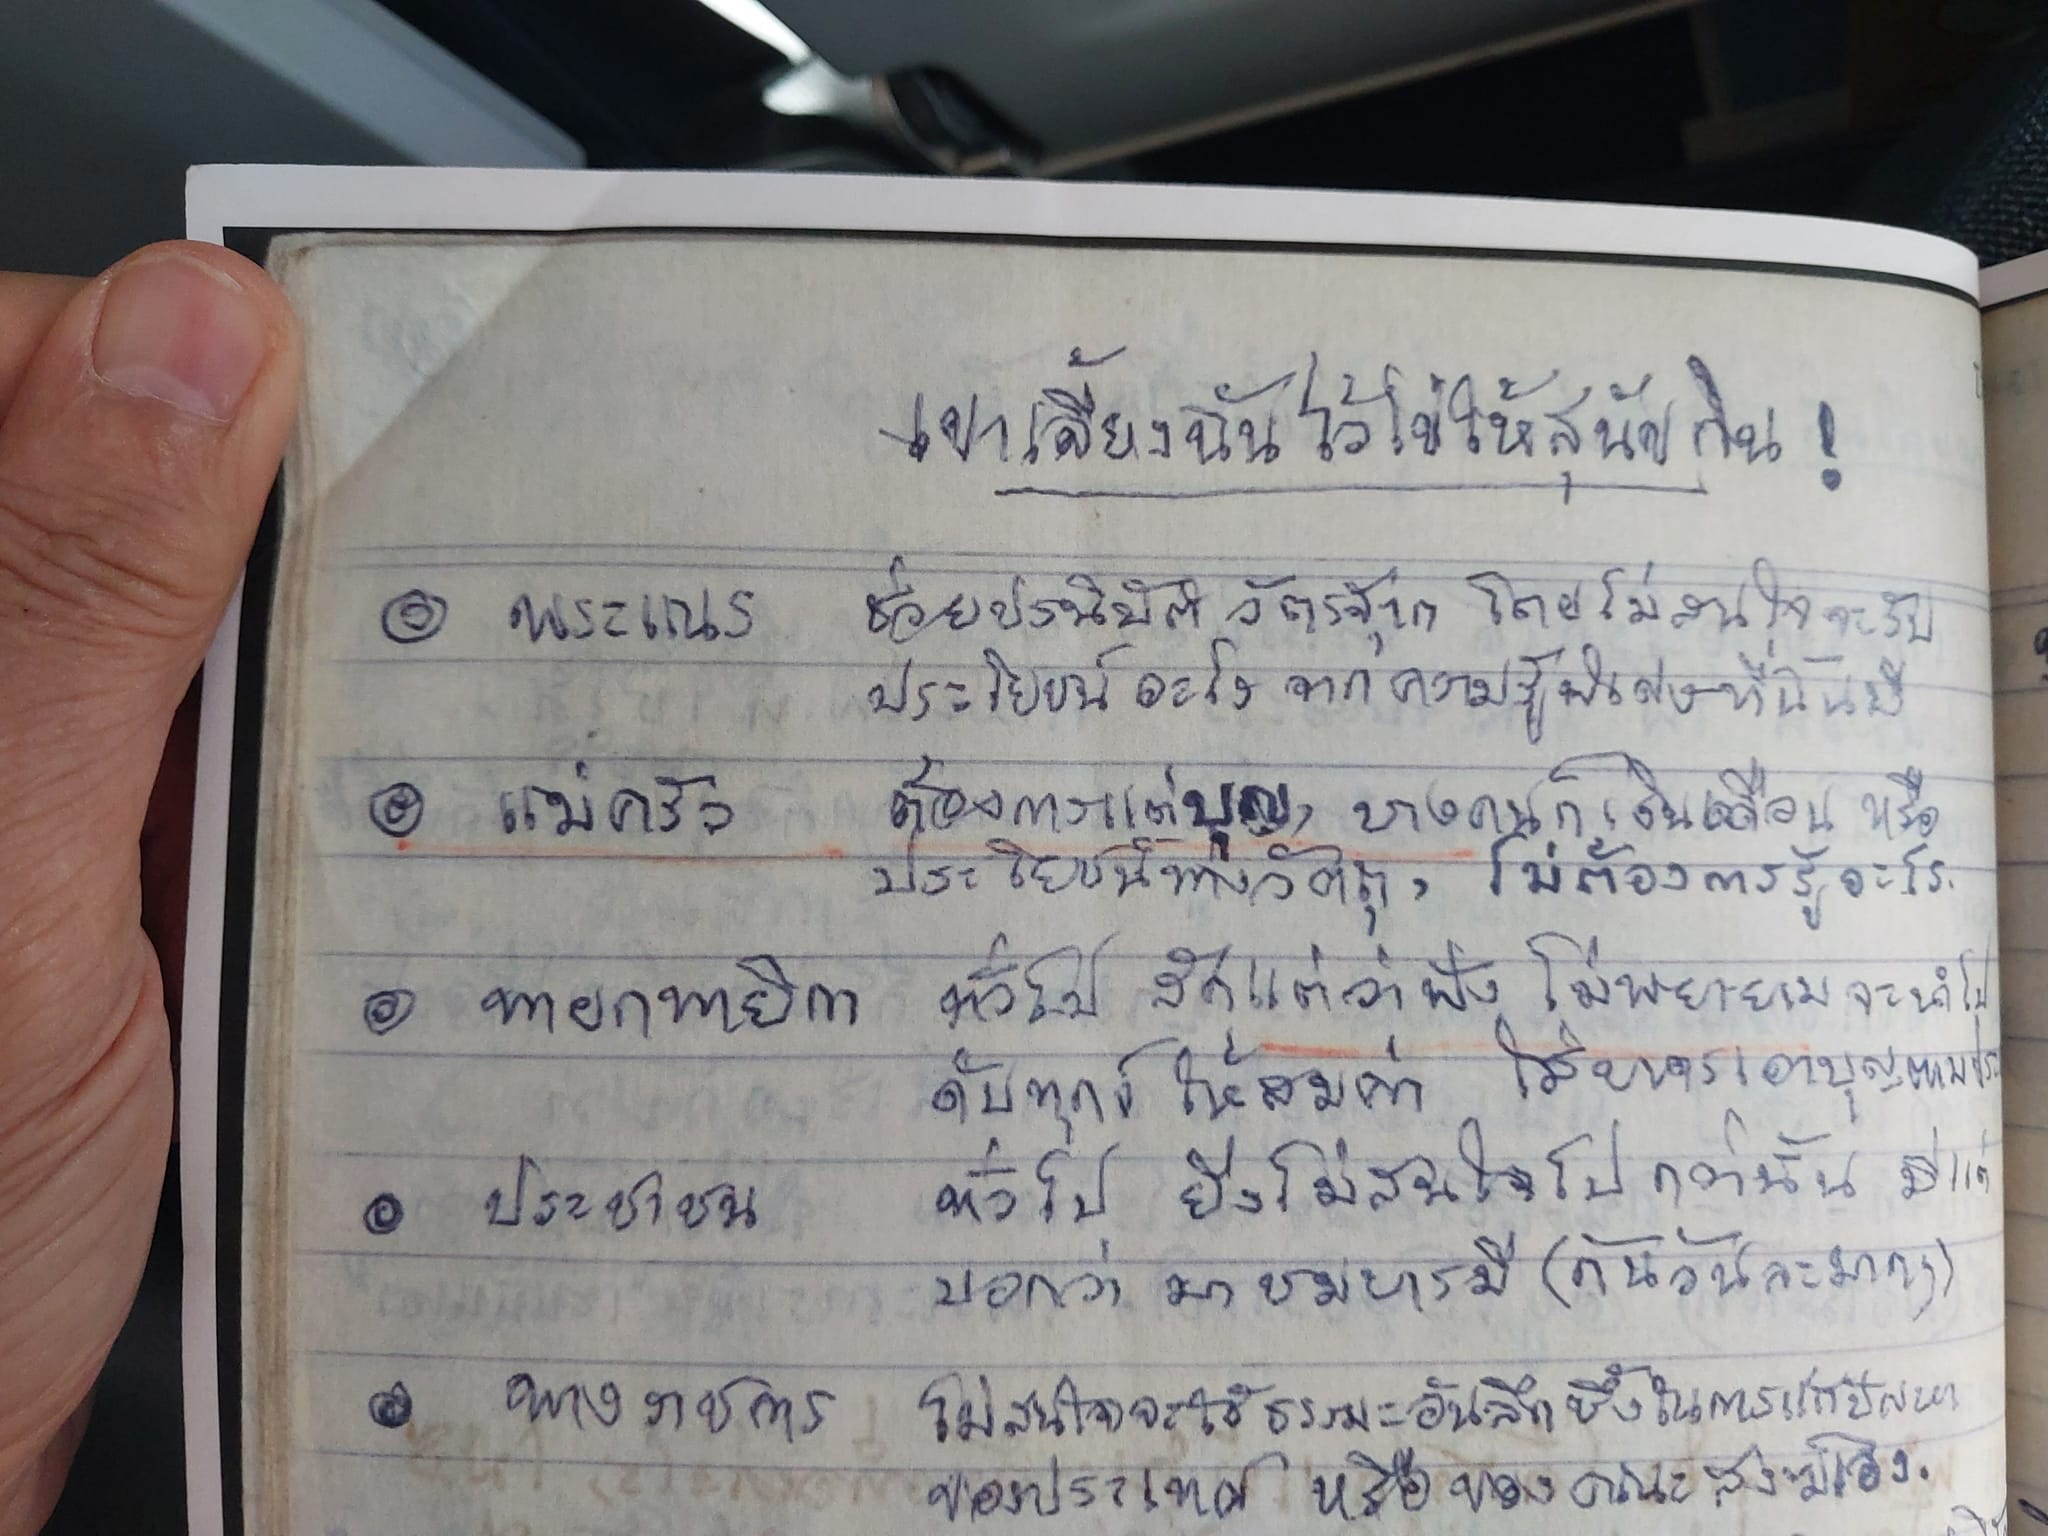 เขาเลี้ยงฉันไว้ไข่ให้สุนัขกิน!
พระเณร ช่วยปรนิบัติ วัตรฐาก โดยไม่สนใจจะรับ
ประโยชน์อะไร จากความรู้พิเศษที่ฉันมี
แม่ครัว ต้องการแต่บุญ, บางคนก็เงินเดือน หรือ
ประโยชน์ทางวัตถุ, ไม่ต้องการรู้อะไร.
ทายกทายิกา ทั่วไป สักแต่ว่าฟัง ไม่พยายามจะนำไป
ดับทุกข์ ให้สมค่า
ประชาชน ทั่วไป ยิ่งไม่สนใจไปกว่านั้น มีแต่
บอกว่า มาชมบารมี (กันวันละมากๆ)
ทางราชการ ไม่สนใจจะใช้ธรรมะอันลึกซึ้งในการแก้ปัญหา
ของประเทศ หรือของคณะสงฆ์เอง.